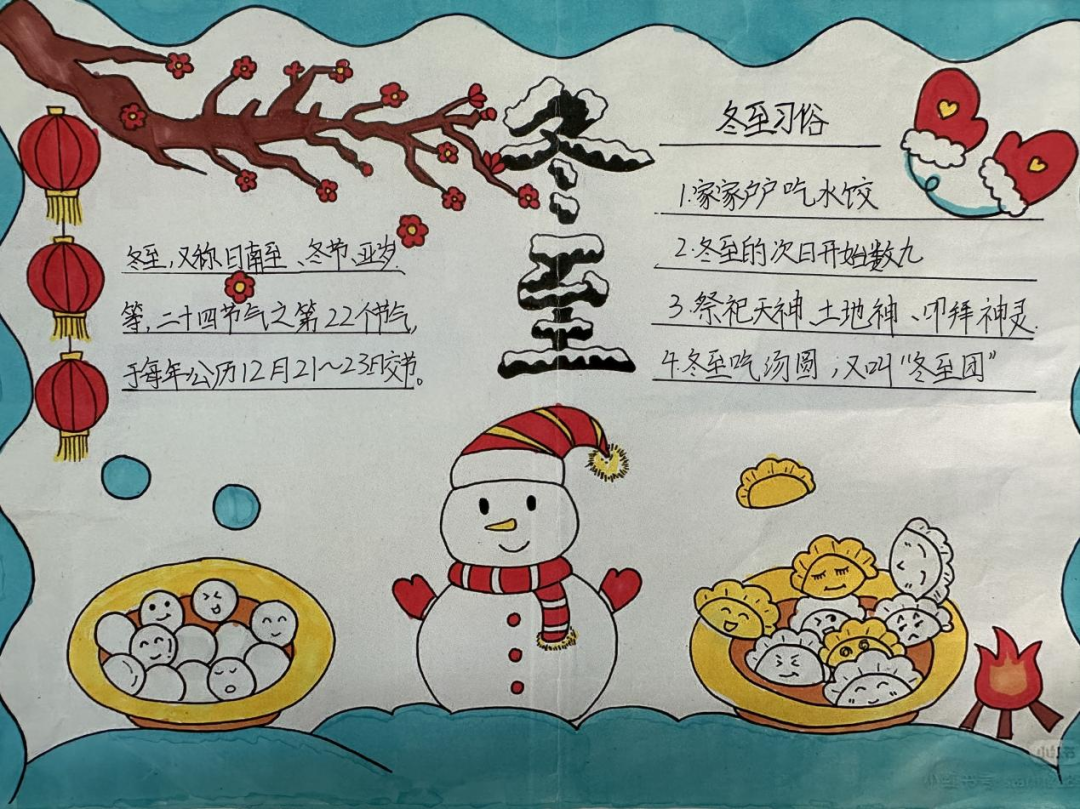 冬至
冬至，又称日南至、冬节、亚岁
等，二十四节气之第22个节气，
于每年公历12月21～23日交节。
冬至习俗
1.家家户户吃水饺
2.冬至的次日开始数九
3.祭祀天神、土地神、叩拜神灵.
4.冬至吃汤圆，又叫“冬至团”